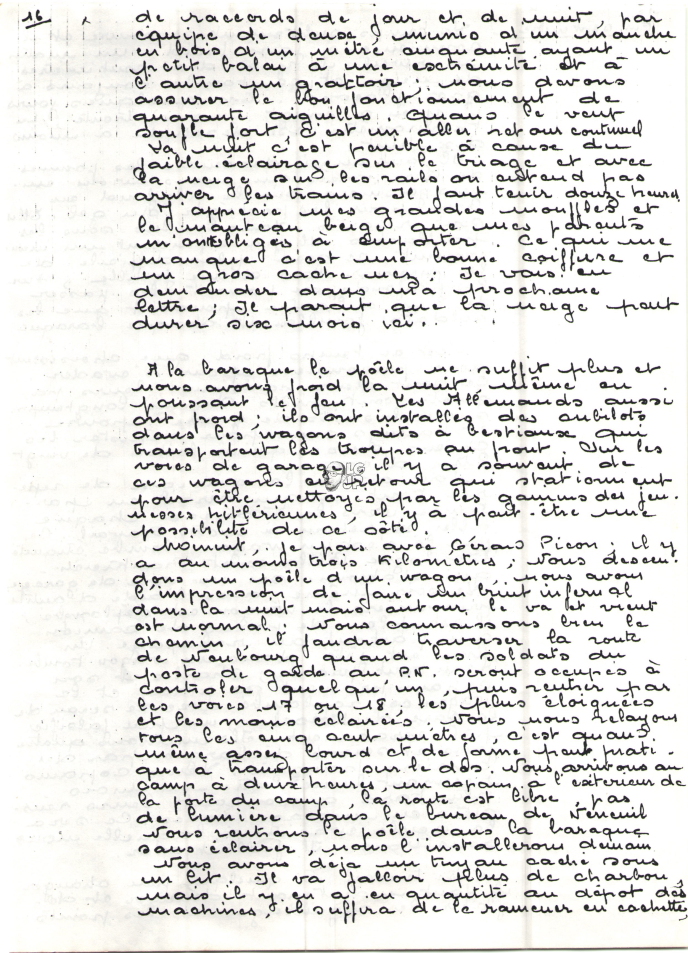 16
de raccords de jour et de nuit, par
équipe de deux, munis d'un manche
en bois d'un mètre cinquante ayant un
petit balai à une extrémité et à
l'autre un grattoir; nous devons
assurer le bon fonctionnement de
quarante aiguilles. Quand le vent
souffle fort c'est un aller retour continuel
La nuit c'est penible à cause du
faible éclairage sur le triage et avec
la neige sur les rails on entend pas
arriver les trains. Il faut tenir douze heures.
J'apprécie mes grandes moufles et
le manteau beige que mes parents
m'ont obligés à emporter. Ce qui me
manque c'est une bonne coiffure et
un gros cache nez. Je vais en
demander dans ma prochaine
lettre; Il parait que la neige peut
durer six mois ici.
A la baraque le poêle ne suffit plus et
nous avons froid la nuit même en
poussant le feu. Les Allemands aussi
ont froid; ils ont installés des cubilots
dans les wagons dits à bestiaux qui
transportent les troupes au front. Sur les
voies de garage il y a souvent de
ces wagons en retour qui stationnent
pour être nettoyés par les gamins des jeu-
nesses hitlériennes, il y à peut-être une
possibilité de ce côté.
Minuit, je pars avec Gérard Picon; il y
a au moins trois kilomètres; Nous descen-
dons un poêle d'un wagon, nous avons
l'impression de faire un bruit infernal
dans la nuit mais autour le va et vient
est normal. Nous connaissons bien le
chemin, il faudra traverser la route
de Neubourg quand les soldats du
poste de garde au P.N. seront occupés à
contrôler quelqu'un, puis rentrer par
les voies 17 ou 18, les plus éloignées
et les moins éclairées. Nous nous relayons
tous les cinq cent mètres, c'est quand
même assez lourd et de forme peut prati-
que à transporter sur le dos. Nous arrivons au
camp à deux heures, un copain à l'extérieur de
la porte du camp, la route est libre, pas
de lumière dans le bureau de Verneuil
Nous rentrons le poêle dans la baraque
sans éclairer, nous l'installerons demain
Nous avons déja un tuyau caché sous
un lit. Il va falloir plus de charbon,
mais il y en a en quantité au dépot des
machines, il suffira de le ramener en cachette,